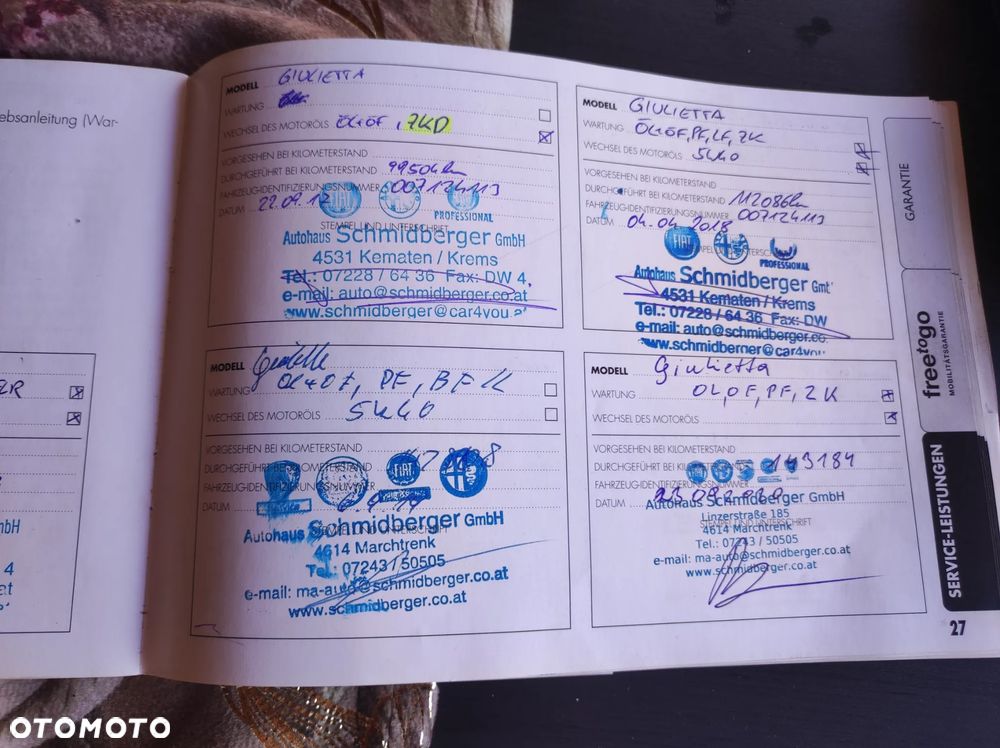 ebsanleitung (War-
ZR
MODELL GIULIETTA
WARTUNG
WECHSEL DES MOTORÖLS ÖL+ÖF, ZKD
VORGESEHEN BEI KILOMETERSTAND
DURCHGEFÜHRT BEI KILOMETERSTAND 99504km
FAHRZEUGIDENTIFIZIERUNGSNUMMER 007124113
DATUM 22.09.17
PROFESSIONAL
STEMPEL UND UNTERSCHRIFT
Autohaus Schmidberger GmbH
4531 Kematen / Krems
Tel.: 07228 / 64 36 Fax: DW 4,
e-mail: auto@schmidberger.co.at
www.schmidberger@car4you.at
MODELL GIULIETTA
WARTUNG ÖL+ÖF, PF, LF, ZK
WECHSEL DES MOTORÖLS 5W40
VORGESEHEN BEI KILOMETERSTAND
DURCHGEFÜHRT BEI KILOMETERSTAND 112086km
FAHRZEUGIDENTIFIZIERUNGSNUMMER 007124113
DATUM 04.04.2018
FIAT
PROFESSIONAL
Autohaus Schmidberger Gmb
4531 Kematen / Krems
Tel.: 07228 / 64 36 Fax: DW
e-mail: auto@schmidberger.co.
www.schmidberger@car4you
MODELL Giulietta
WARTUNG OL+OF, PF, BFK
WECHSEL DES MOTORÖLS 5W40
VORGESEHEN BEI KILOMETERSTAND
DURCHGEFÜHRT BEI KILOMETERSTAND
FAHRZEUGIDENTIFIZIERUNGSNUMMER
FIAT
DATUM
STEMPEL UND UNTERSCHRIFT
Autohaus Schmidberger GmbH
4614 Marchtrenk
Tel.: 07243 / 50505
e-mail: ma-auto@schmidberger.co.at
www.schmidberger.co.at
MODELL Giulietta
WARTUNG OL, OF, PF, ZK
WECHSEL DES MOTORÖLS
VORGESEHEN BEI KILOMETERSTAND
DURCHGEFÜHRT BEI KILOMETERSTAND 143184
FAHRZEUGIDENTIFIZIERUNGSNUMMER
DATUM
Autohaus Schmidberger GmbH
Linzerstraße 185
STEMPEL UND UNTERSCHRIFT
4614 Marchtrenk
Tel.: 07243 / 50505
e-mail: ma-auto@schmidberger.co.at
www.schmidberger.co.at
GARANTIE
freetogo
MOBILITÄTSGARANTIE
SERVICE-LEISTUNGEN
27
OTOMOTO